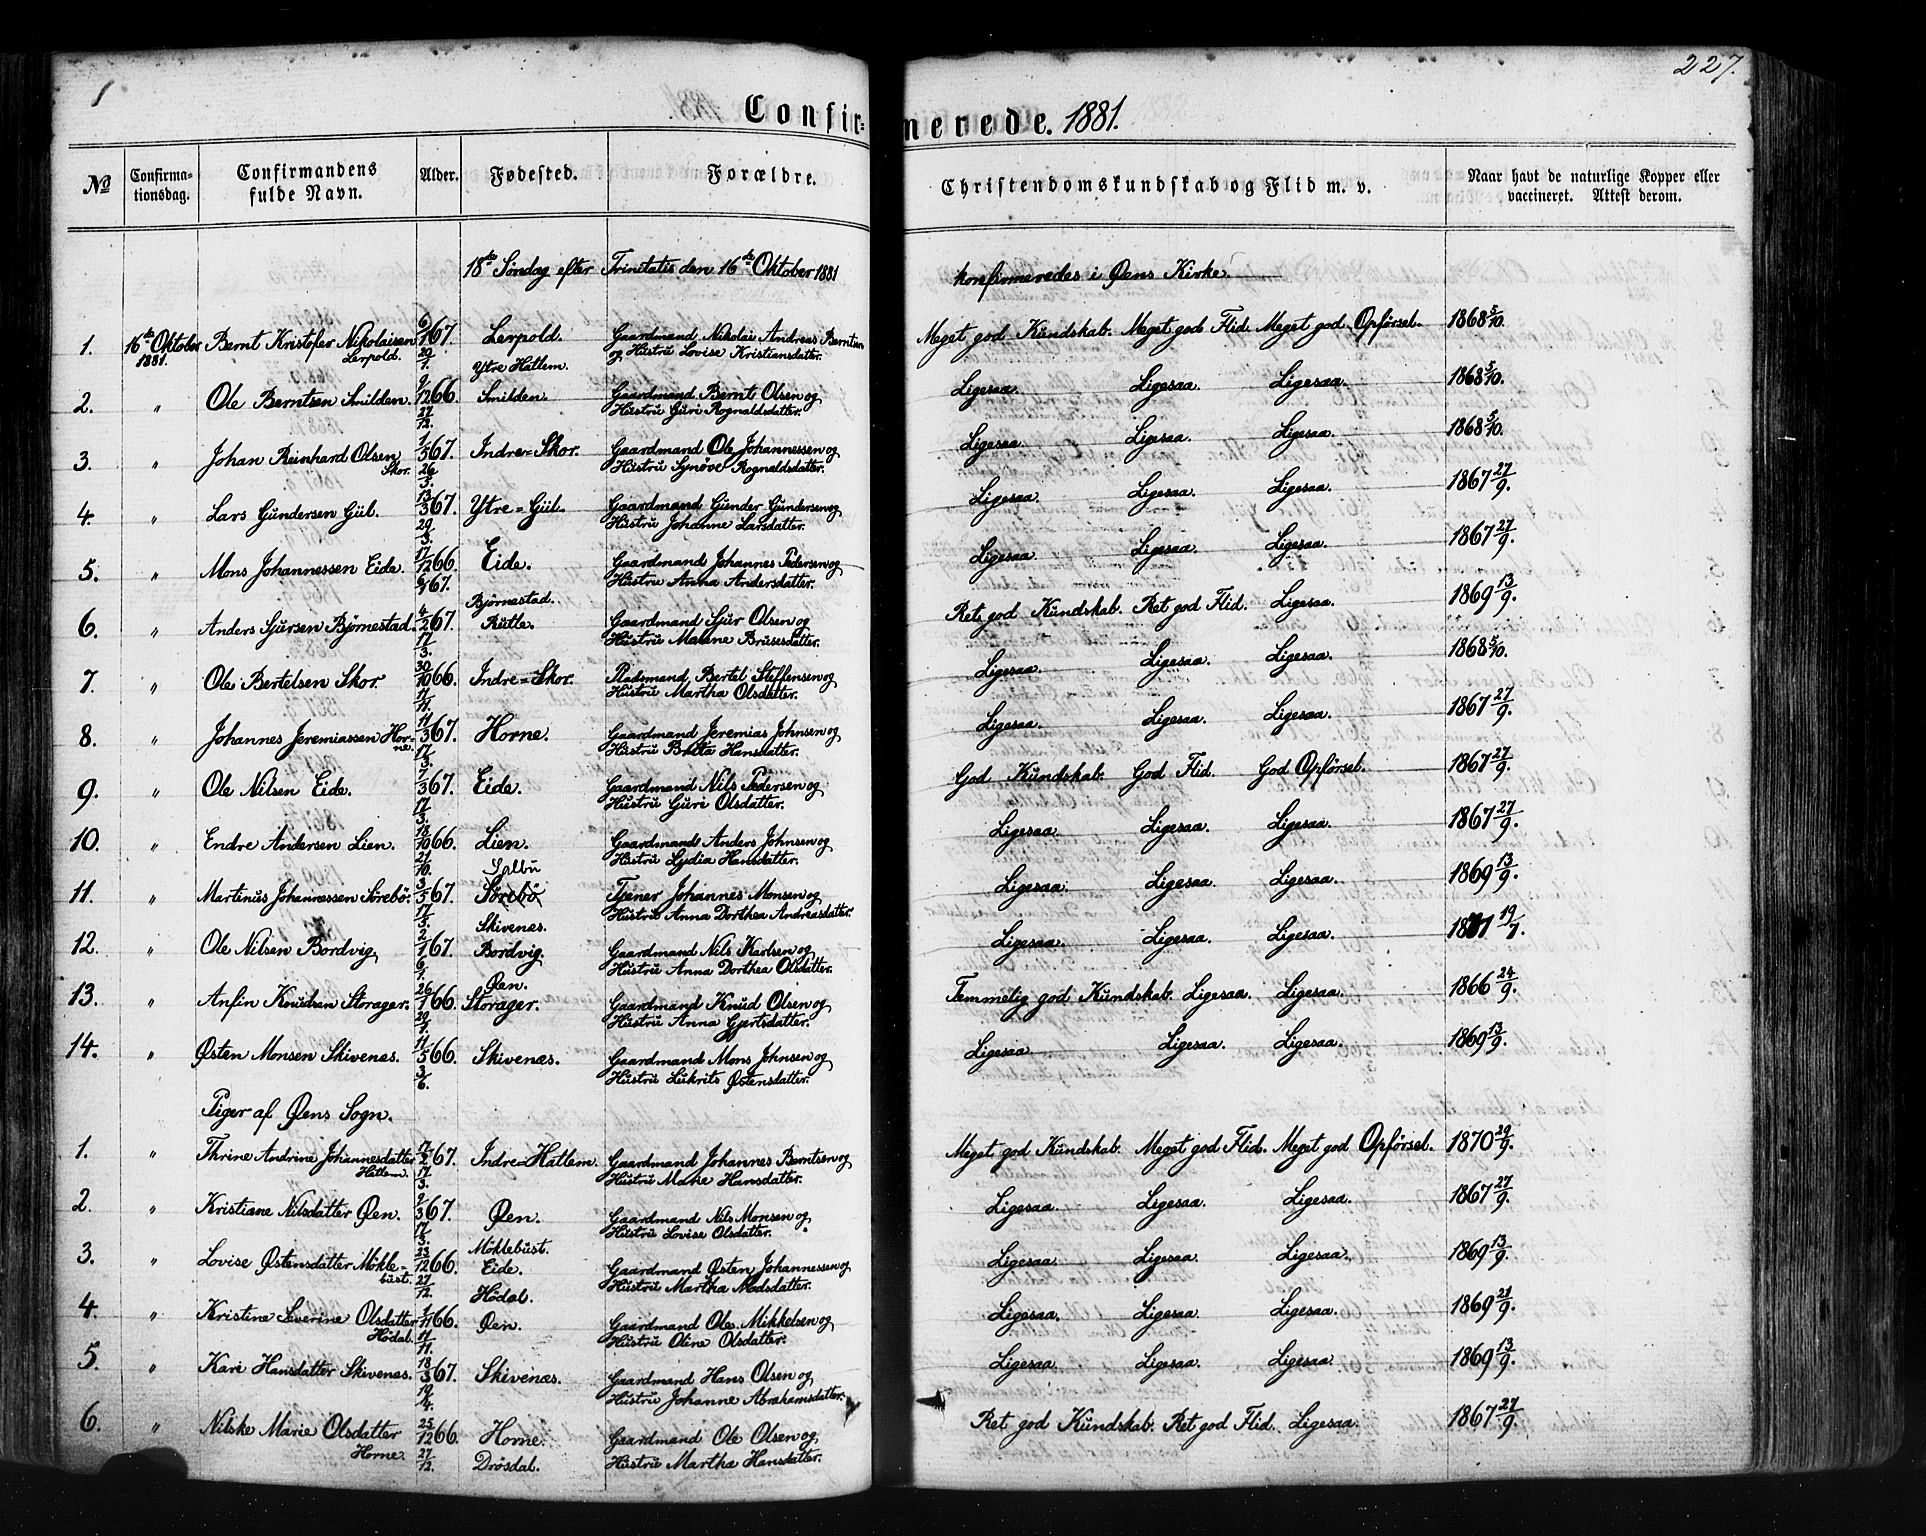 227.
Confirmerede. 1881.
No Confirmationsdag. Confirmandens fulde Navn. Alder. Fødested. Forældre. Christendomskundskab og Flid m. v. Naar havt de naturlige Kopper eller vaccineret. Attest derom.
18de Søndag efter Trinitatis den 16de Oktober 1881 konfirmeredes i Øens Kirke.
1. 16de Oktober 1881. Bernt Kristofer Nikolaisen Lerpold. 6/1 67. 29/1. Lerpold. Gaardmand Nikolai Andreas Berntsen og Hustru Lovise Kristiansdatter. Meget god Kundskab. Meget god Flid. Meget god Opførsel. 1868 5/10.
2. " Ole Berntsen Smilden. 9/12 66. 27/12. Ytre Hatlem. Smilden. Gaardmand Bernt Olsen og Hustru Guri Rognaldsdatter. Ligesaa. Ligesaa. Ligesaa. 1868 5/10.
3. " Johan Reinhard Olsen Skor. 1/5 67. 26/5. Indre-Skor. Gaardmand Ole Johannessen og Hustru Synøve Rognaldsdatter. Ligesaa. Ligesaa. Ligesaa. 1868 5/10.
4. " Lars Gundersen Gül. 13/3 67. 29/3. Ytre-Gül. Gaardmand Gunder Gundersen og Hustru Johanne Larsdatter. Ligesaa. Ligesaa. Ligesaa. 1867 27/9.
5. " Mons Johannessen Eide. 17/12 66. 6/1 67. Eide. Gaardmand Johannes Pedersen og Hustru Anna Andersdatter. Ligesaa. Ligesaa. Ligesaa. 1867 27/9.
6. " Anders Sjursen Bjørnestad. 4/2 67. 17/3. Bjørnestad. Rutle. Gaardmand Sjur Olsen og Hustru Malene Brusesdatter. Ret god Kundskab. Ret god Flid. Ligesaa. 1869 13/9.
7. " Ole Bertelsen Skor. 30/10 66. 11/11. Indre-Skor. Pladsmand Bertel Steffensen og Hustru Martha Olsdatter. Ligesaa. Ligesaa. Ligesaa. 1868 5/10.
8. " Johannes Jeremiassen Horne. 11/3 67. 17/3. Horne. Gaardmand Jeremias Johnsen og Hustru Britta Hansdatter. Ligesaa. Ligesaa. Ligesaa. 1867 27/9.
9. " Ole Nilsen Eide. 7/3 67. 17/3. Eide. Gaardmand Nils Pedersen og Hustru Guri Olsdatter. God Kundskab. God Flid. God Opførsel. 1867 27/9.
10. " Endre Andersen Lien. 18/10 66. 21/10. Lien. Gaardmand Anders Johnsen og Hustru Lydia Hansdatter. Ligesaa. Ligesaa. Ligesaa. 1867 27/9.
11. " Martinus Johannessen Sörebö. 3/5 67. 17/5. Salbu Sörebö Tjener Johannes Monsen og Hustru Anna Dorthea Andreasdatter. Ligesaa. Ligesaa. Ligesaa. 1869 13/9.
12. " Ole Nilsen Bordvig. 2/1 67. 6/1. Skivenæs. Bordvig. Gaardmand Nils Karlsen og Hustru Anna Dorthea Olsdatter. Ligesaa. Ligesaa. Ligesaa. 1871 19/7.
13. " Anfin Knudsen Storager. 26/1 66. 29/1. Øen. Storager. Gaardmand Knud Olsen og Hustru Anna Gjertsdatter. Temmelig god Kundskab. Ligesaa. Ligesaa. 1866 24/9.
14. " Østen Monsen Skivenæs. 11/5 66. 3/6. Skivenæs. Gaardmand Mons Johnsen og Hustru Lukrits Østensdatter. Ligesaa Ligesaa. Ligesaa. 1869 13/9.
Piger af Øens Sogn.
1. " Thrine Andrine Johannesdatter Hatlem. 17/2 67. 17/3. Indre-Hatlem. Gaardmand Johannes Berntsen og Hustru Hansdatter. Meget god Kundskab. Meget god Flid. Meget god Opførsel. 1870 29/9.
2. " Kristiane Nilsdatter Øen. 9/3 67. 17/3. Øen. Gaardmand Nils Monsen og Hustru Lovise Olsdatter. Ligesaa. Ligesaa. Ligesaa. 1867 27/9.
3. " Lovise Østensdatter Möklebust. 23/12 66. 27/12. Möklebust. Eide. Gaardmand Østen Johannessen og Hustru Martha Madsdatter. Ligesaa. Ligesaa. Ligesaa. 1869 13/9.
4. " Kristine Severine Olsdatter Hödal. 1/11 66. 11/11. Hödal. Øen. Gaardmand Ole Mikkelsen og Hustru Oline Olsdatter. Ligesaa. Ligesaa. Ligesaa. 1869 21/9.
5. " Kari Hansdatter Skivenæs. 18/3 67. 19/4. Skivenæs. Gaardmand Hans Olsen og Hustru Johanne Abrahamsdatter. Ligesaa. Ligesaa. Ligesaa. 1869 13/9.
6. " Nilske Marie Olsdatter Horne. 25/12 66. 27/12. Horne. Drösdal. Gaardmand Ole Olsen og Hustru Martha Hansdatter. Ret god Kundskab. Ret god Flid. Ligesaa. 1867 27/9.